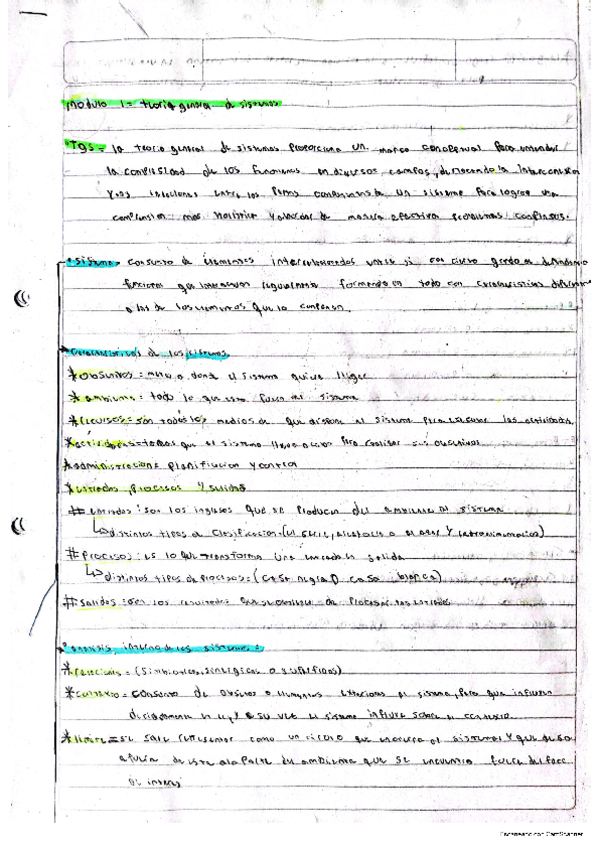 modulo 1 = teoria general de sistemas
*TGS = la teoria general de sistemas proporciona un marco conceptual para entender
la complejidad de los fenomenos en diversos campos, destacando la interconexion
entre las partes de un sistema para lograr una
comprension mas holistica y abordar de manera efectiva problemas complejos.
*Sistema = Conjunto de elementos interrelacionados entre si
funciones que interactuan regularmente formando un todo con caracteristicas
a las de los elementos que lo componen.
caracteristicas de los sistemas
*objetivos = meta a donde el sistema quiere llegar
*ambiente = todo lo que esta fuera del sistema
*recursos = son todos los medios de que dispone el sistema para ejecutar las actividades
*actividades = tareas que el sistema lleva a cabo para realizar sus objetivos
*administracion = planificacion y control
*entradas, procesos y salidas
#entradas: son los ingresos que se producen del ambiente al sistema
↳ distintos tipos de clasificacion = (en serie, aleatoria o al azar y retroalimentacion)
#Proceso: es lo que transforma una entrada en salida
↳ distintos tipos de procesos = (caja negra o caja blanca)
#Salidas = son los resultados que se obtienen de procesar las entradas
*analisis interno de los sistemas =
*relaciones = (simbioticas, sinergicas o superfluas)
*contexto = conjunto de objetos o elementos exteriores al sistema, pero que influyen
decididamente en el, y a su vez el sistema influye sobre el contexto.
*limite = se suele representar como un circulo que encierra al sistema y que deja
afuera de este a la parte del ambiente que se encuentra fuera del foco
de interes
Escaneado con CamScanner